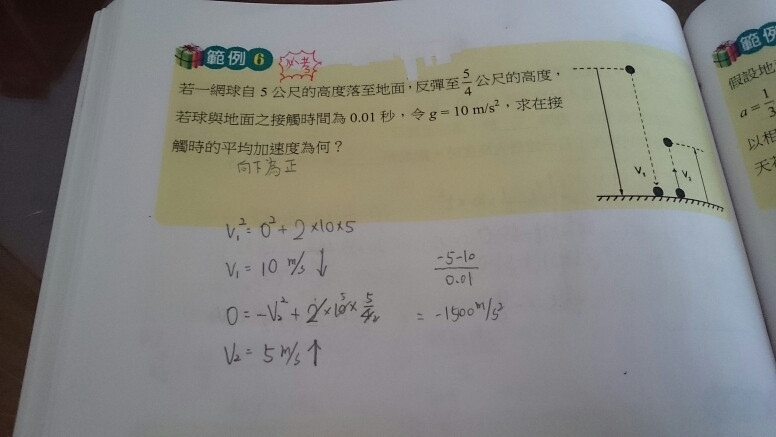 範例 6 必考
若一網球自 5 公尺的高度落至地面，反彈至 5/4 公尺的高度，
若球與地面之接觸時間為 0.01 秒，令 g = 10 m/s²，求在接
觸時的平均加速度為何？
向下為正
V₁ V₂
V₁² = 0² + 2×10×5
V₁ = 10 m/s ↓
0 = -V₂² + 2×10×5/4
V₂ = 5 m/s ↑
-5-10
0.01
= -1500 m/s²
範例
假設地
a = 1/3
以相